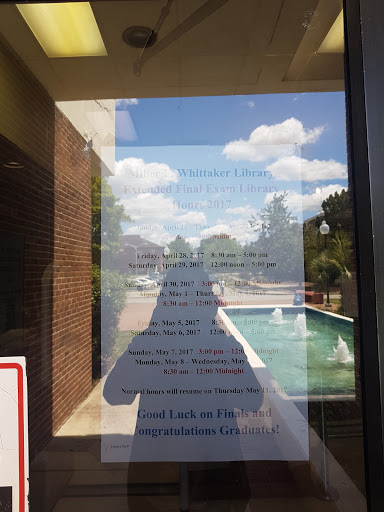 Miller F. Whittaker Library
Extended Final Exam Library
Hours 2017
Friday, April 28, 2017 8:30 am – 5:00 pm
Saturday, April 29, 2017 – 12:00 noon – 5:00 pm
Sunday, April 30, 2017 – 3:00 pm – 12:00 Midnight
Monday, May 1 –
8:30 am – 12 Midnight
Friday, May 5, 2017 8:30 am – 5:00 pm
Saturday, May 6, 2017 – 12:00 – 5:00 pm
Sunday, May 7, 2017 3:00 pm – 12:00 Midnight
Monday, May 8 – Wednesday, May
8:30 am – 12 Midnight
Normal hours will resume on Thursday May 11, 2017
Good Luck on Finals and
Congratulations Graduates!